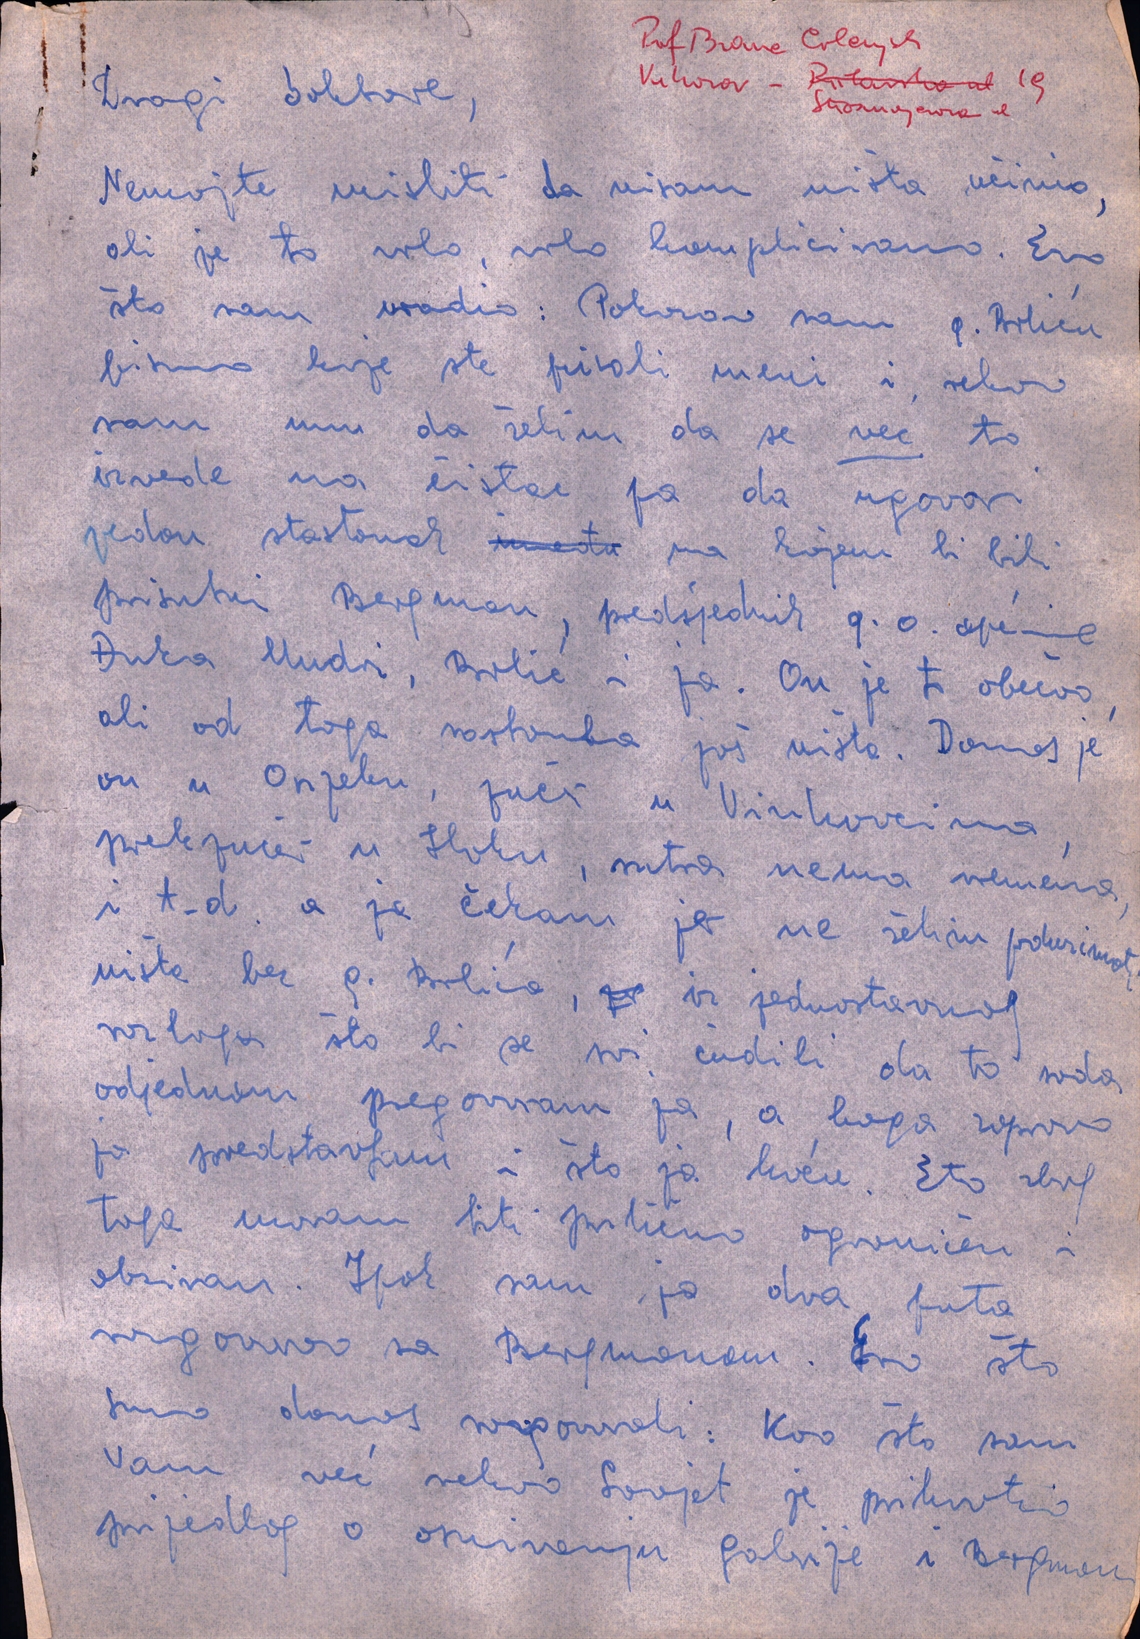 Prof Brane Crlenjak
Vukovar - ul 19
Strosmajerova ul
Dragi doktore,
Nemojte misliti da nisam ništa učinio,
ali je to vrlo, vrlo komplicirano. Evo
što sam uradio: Pokazao sam g. Brliću
pismo koje ste pisali meni i rekao
sam mu da želim da se već to
izvede na čistac pa da ugovori
jedan sastanak na kojem bi bili
prisutni Bergman, predsjednik g. o. općine
Đuka Mudri, Brlić i ja. On je to obećao,
ali od toga sastanka još ništa. Danas je
on u Osijeku, jučer u Vinkovcima,
prekjučer u Iloku, sutra nema vremena,
i t.d. a ja čekam jer ne želim poduzimati
ništa bez g. Brlića, iz jednostavnog
razloga što bi se svi čudili da to sada
odjednom pregovaram ja, a koga zapravo
ja predstavljam i što ja hoću. Eto zbog
toga moram biti prilično ograničen i
obziran. Ipak sam ja dva puta
razgovarao sa Bergmanom. Evo što
smo danas razgovarali: Kao što sam
Vam već rekao Savjet je prihvatio
prijedlog o osnivanju galerije i Bergman